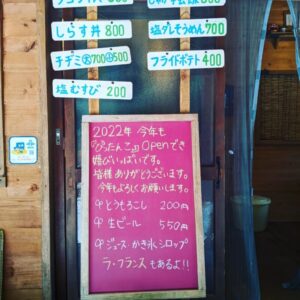 しらす丼 800
塩ダレそうめん 700
チヂミ大700小500
フライドポテト 400
塩むすび 200
2022年 今年も
Openでき
嬉しいっぱいです。
皆様ありがとうございます。
今年もよろしくお願いします。
とうもろこし 200円
生ビール 550円
ジュース・かき氷シロップ
ラ・フランスもあるよ!!